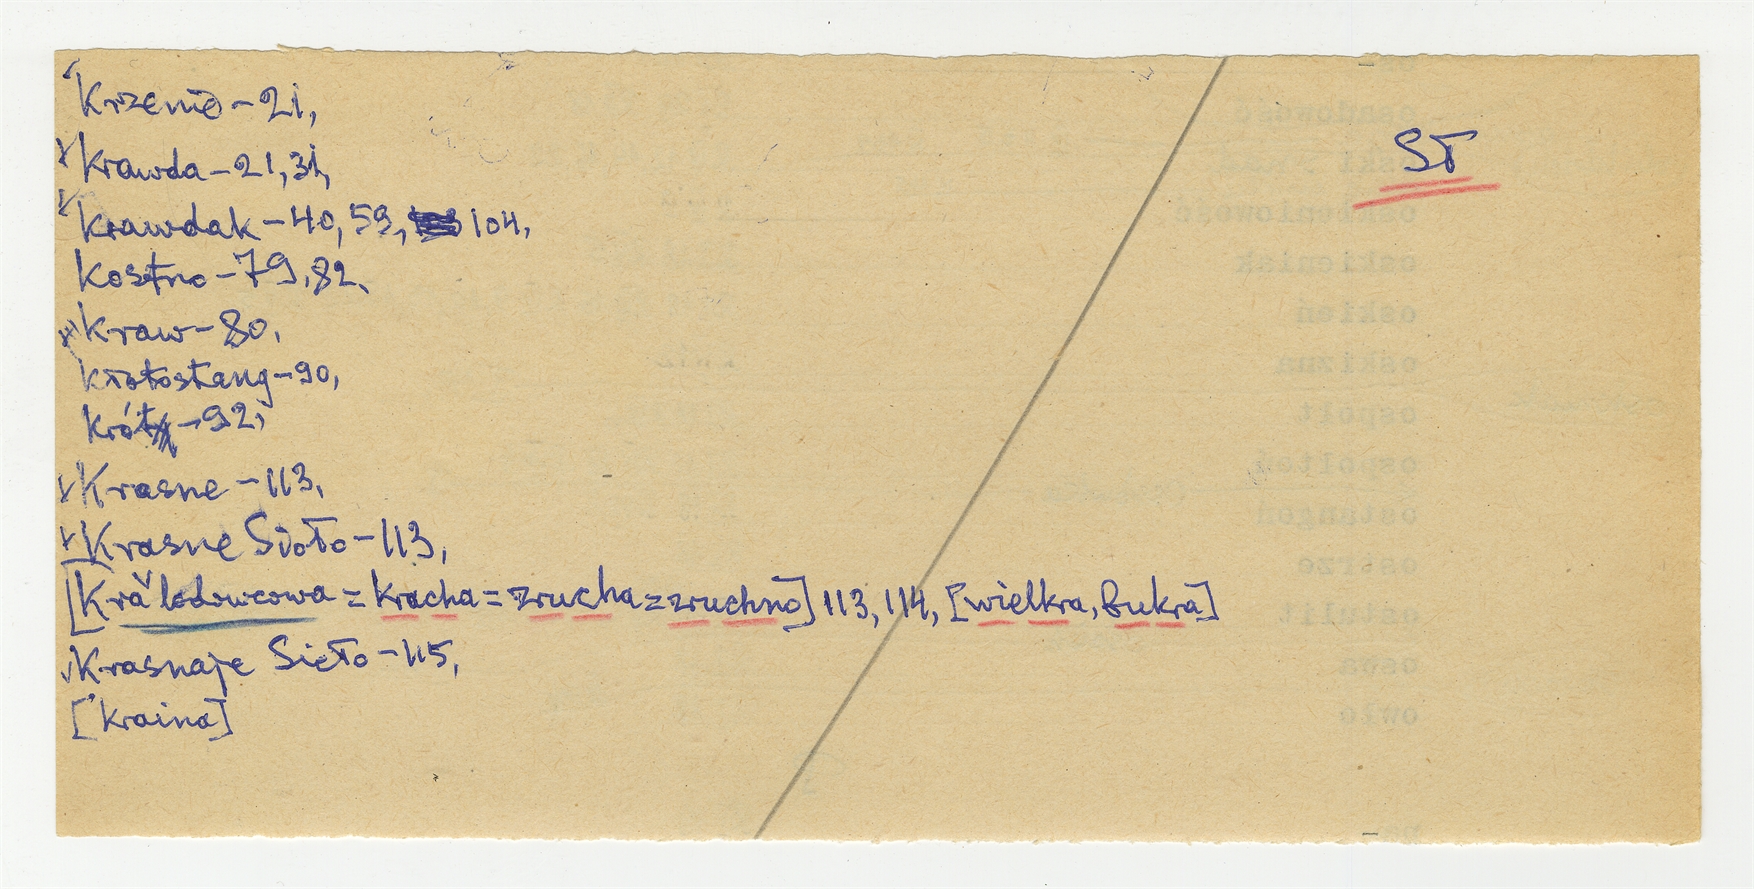 Krzemio-21,
SŁ
Krawda-21,31,
Krawdak-40,59, 104,
Kostno-79,82,
Kraw-80,
krótostang-90,
krót-92,
Krasne-113,
Krasne Sioło-113,
[Kra lodowcowa=kracha=zrucha=zruchno] 113, 114, [wielkra, bukra]
Krasnaje Sieło-115,
[kraina]